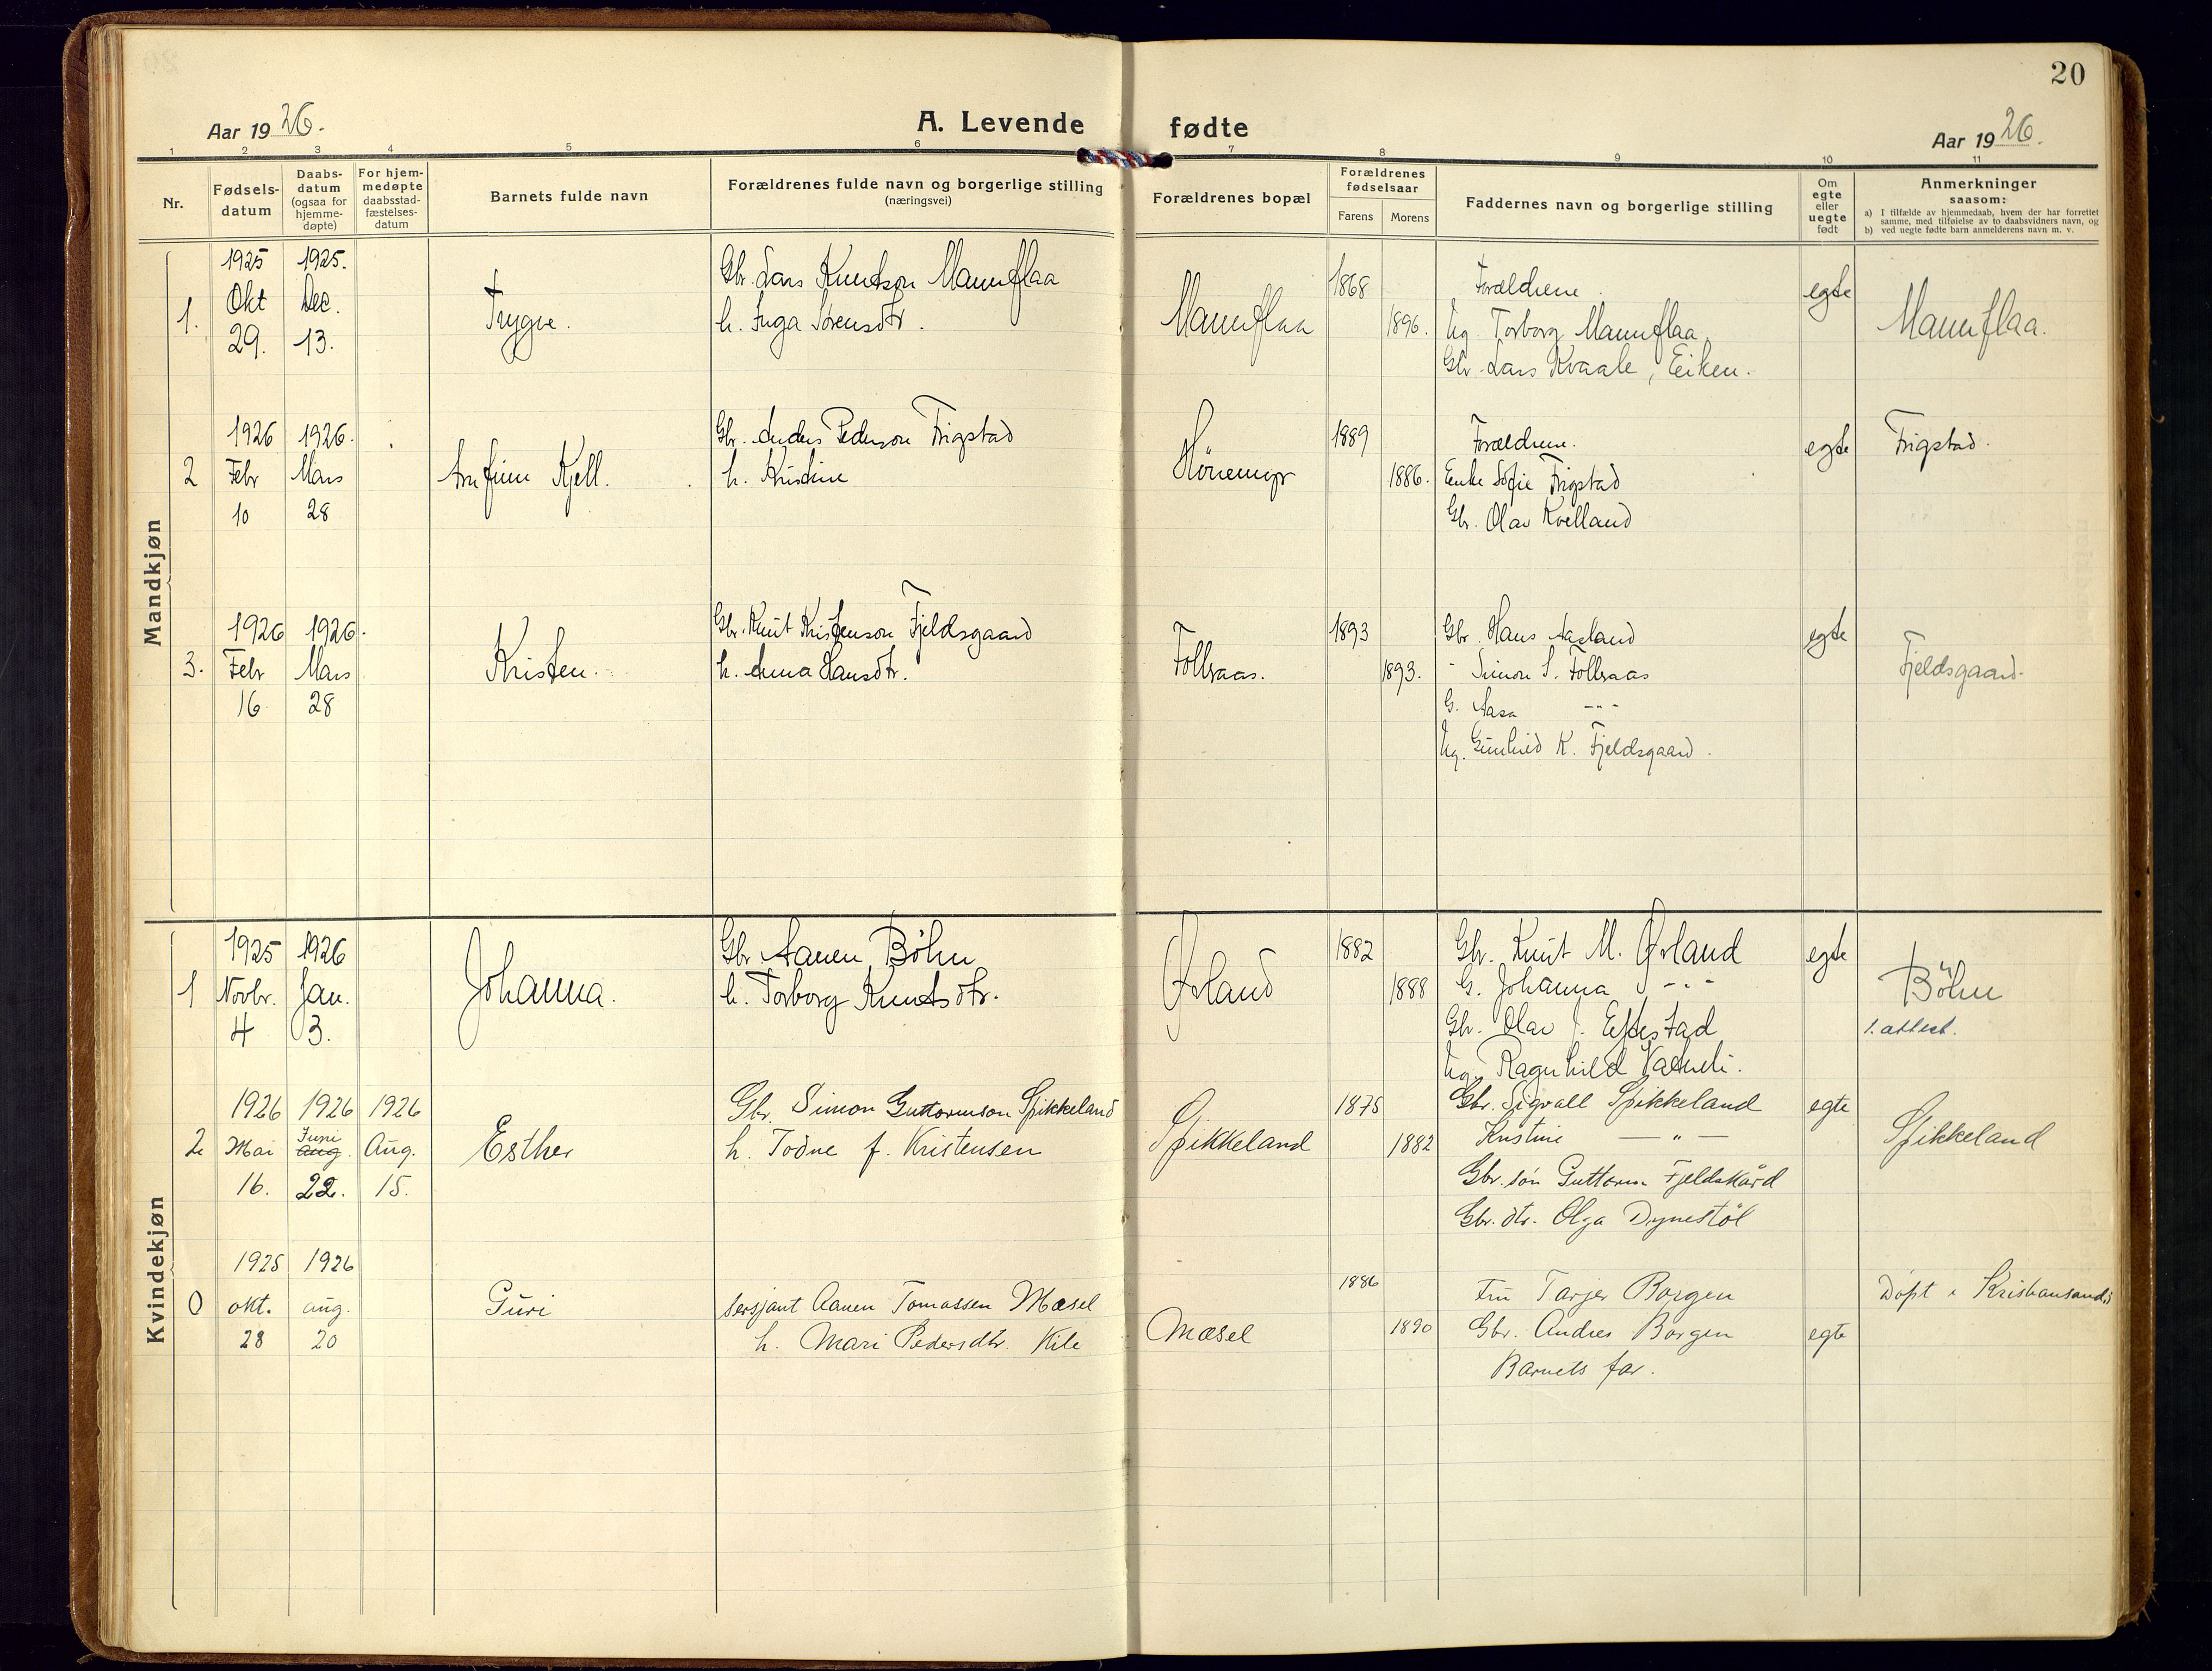 20
Aar 1926.
A. Levende fødte
Aar 1926.
1 2 3 4 5 6 7 8 9 10 11
Nr.
Fødselsdatum
Daabsdatum (ogsaa for hjemmedøpte)
For hjemmedøpte daabsstadfæstelsesdatum
Barnets fulde navn
Forældrenes fulde navn og borgerlige stilling (næringsvei)
Forældrenes bopæl
Forældrenes fødselsaar
Farens
Morens
Faddernes navn og borgerlige stilling
Om egte eller uegte født
Anmerkninger saasom:
a) I tilfælde av hjemmedaab, hvem der har forrettet samme, med tilføielse av to daabsvidners navn, og
b) ved uegte fødte barn anmelderens navn m. v.
Mandkjøn
1.
1925 Okt 29.
1925. Dec. 13.
Trygve.
Gbr. Lars Knutson Mannflaa
h. Inga Sørensdtr.
Mannflaa
1868
1896.
Forældrene.
Ug. Torborg Mannflaa
Gbr. Lars Kvaale, Eiken.
egte
Mannflaa.
2
1926 Febr 10
1926. Mars 28
Arnfinn Kjell.
Gbr. Anders Pederson Frigstad
h. Kristine
Hönemyr
1889
1886.
Forældrene.
Enke Sofie Frigstad
Gbr. Olav Kvelland
egte
Frigstad.
3.
1926 Febr 16
1926. Mars 28
Kristen.
Gbr. Knut Kristenson Fjeldsgaard
h. Anna Hansdtr.
Follsraas.
1893
1893.
Gbr. Hans Aasland
- Simon S. Follsraas
G. Aasa - " -
Ug. Gunhild K. Fjeldsgaard.
egte
Fjeldsgaard.
Kvindekjøn
1
1925 Novbr. 4
1926 Jan. 3.
Johanna.
Gbr. Aanen Böhn
h. Torborg Knutsdtr.
Øvland
1882
1888
Gbr. Knut M. Øvland
G. Johanna - " -
Gbr. Olav J. Eftestad
Ug. Ragnhild Vatneli.
egte
Böhn
1. attest.
2
1926 Mai 16.
1926 Juni Aug. 22.
1926 Aug. 15.
Esther
Gbr. Simon Guttormson Spikkeland
h. Todne f. Kristensen
Spikkeland
1875
1882
Gbr. Sigvall Spikkeland
Kristine — " —
Gbr. søn Guttorm Fjeldskård
Gbr. dtr. Olga Dynestöl
egte
Spikkeland
0
1925 okt. 28
1926 aug. 20
Guri
Sersjant Aanen Tomassen Mæsel
h. Mari Pedersdtr. Kile
Mæsel
1886
1890
Fru Tarjer Borgen
Gbr. Andres Borgen
Barnets far.
egte
Döpt i Kristiansand